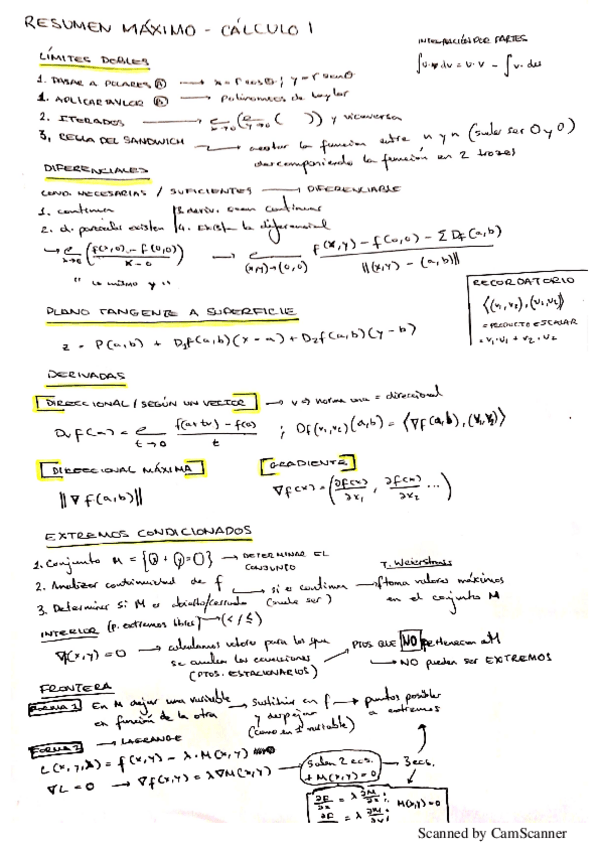 RESUMEN MÁXIMO - CÁLCULO 1
INTEGRACIÓN POR PARTES
∫u·dv = u·v - ∫v·du
LÍMITES DOBLES
1. PASAR A POLARES → x = r cosθ ; y = r senθ
1. APLICAR TAYLOR → Polinomios de Taylor
2. ITERADOS → y viceversa
3. REGLA DEL SANDWICH → acotar la función entre n y n (suele ser 0 y 0)
descomponiendo la función en 2 trozos
DIFERENCIALES
COND. NECESARIAS / SUFICIENTES → DIFERENCIABLE
1. continua 3. deriv. sean continuas
2. d. parciales existen 4. Exista la diferencial
f(x,0) - f(0,0) / x - 0
f(x,y) - f(0,0) - Σ Df(a,b) / ||(x,y) - (a,b)||
(x,y)→(0,0)
" lo mismo y "
RECORDATORIO
= PRODUCTO ESCALAR
PLANO TANGENTE A SUPERFICIE
z = P(a,b) + D₁f(a,b)(x - a) + D₂f(a,b)(y - b)
DERIVADAS
DIRECCIONAL / SEGÚN UN VECTOR → v es norma una = direccional
Dv f(a) = f(a+tv) - f(a) / t ; Df(v₁,v₂)(a,b) = ⟨∇f(a,b), (v₁,v₂)⟩
t→0
DIRECCIONAL MÁXIMA GRADIENTE
||∇f(a,b)|| ∇f(x) = (∂f(x)/∂x₁ , ∂f(x)/∂x₂ ...)
EXTREMOS CONDICIONADOS
1. Conjunto M = → DETERMINAR EL CONJUNTO
2. Analizar continuidad de f → si es continua → f toma valores máximos en el conjunto M
T. Weierstrass
3. Determinar si M es abierto/cerrado (suele ser)
INTERIOR (p. extremos libres) → (< / ≤)
∇f(x,y) = 0 → calculamos valores para los que se anulen las ecuaciones (PTOS. ESTACIONARIOS)
PTOS QUE NO pertenezcan a M
→ NO pueden ser EXTREMOS
FRONTERA
FORMA 1 En M dejar una variable en función de la otra → Sustituir en f y despejar (como en 1 variable) → puntos posibles a extremos
FORMA 2 → LAGRANGE
L(x,y,λ) = f(x,y) - λ·M(x,y)
∇L = 0 → ∇f(x,y) = λ∇M(x,y) → Salen 2 ecs. + M(x,y) = 0 → 3 ecs.
M(x,y) = 0
Scanned by CamScanner